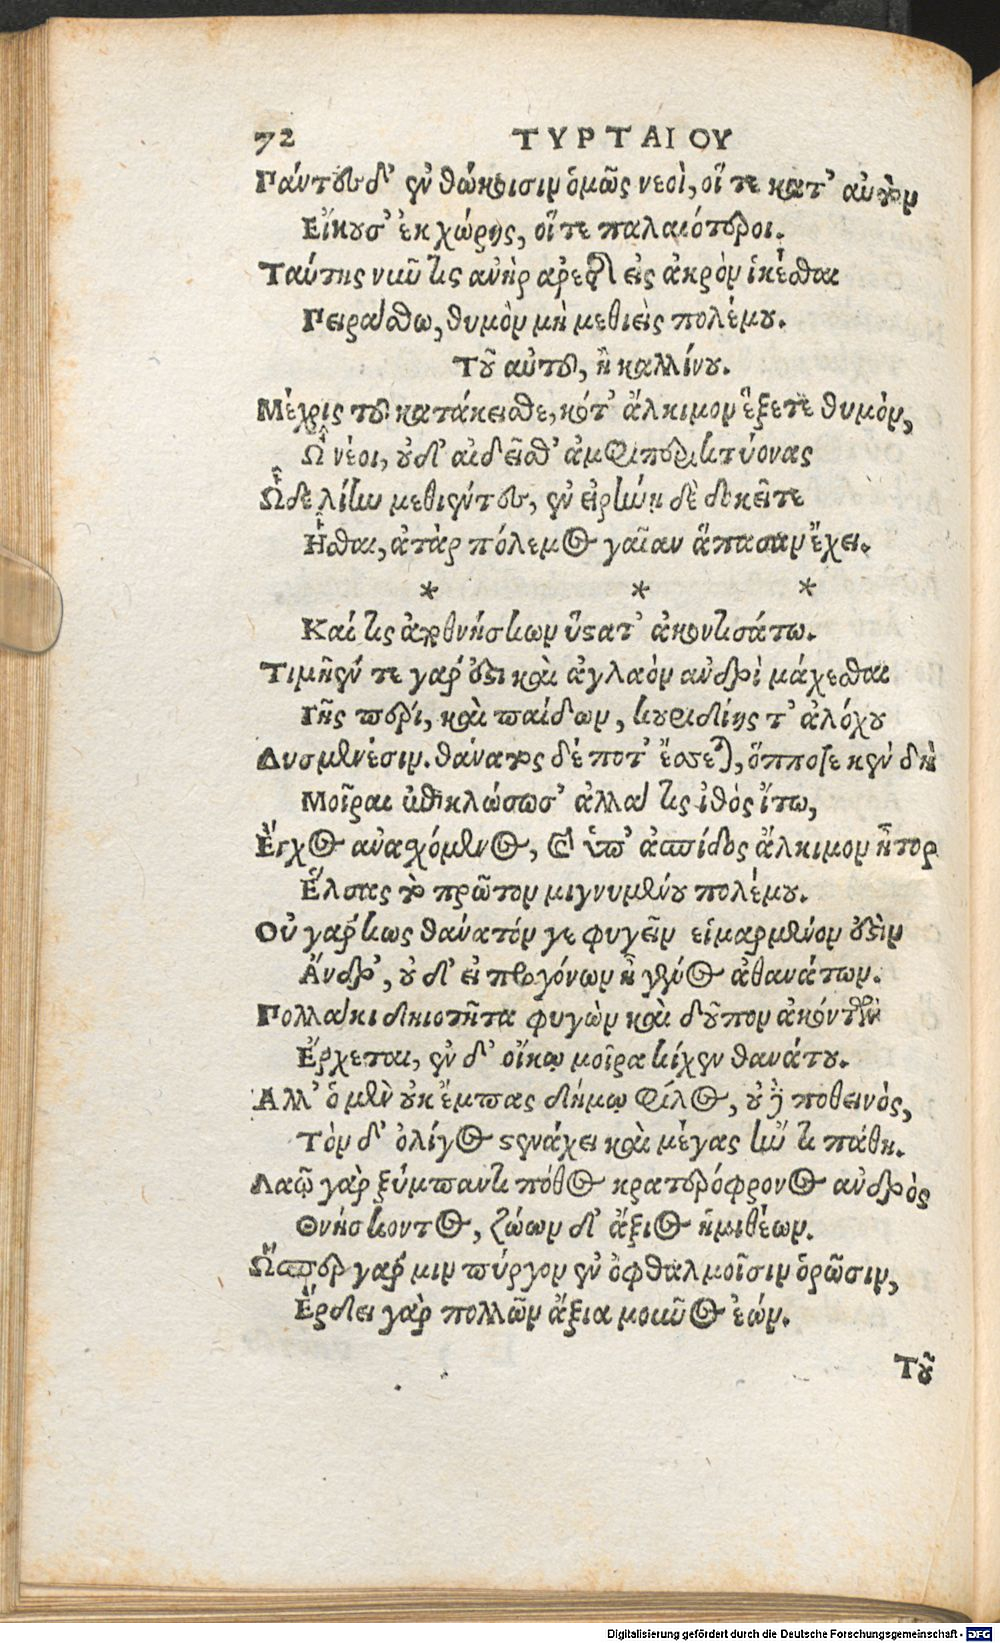 72 ΤΥΡΤΑΙΟΥ
Πάντες δ' ἐν θώκοισιν ὁμῶς νεοὶ, οἵ τε κατ' αὐτὸν
Εἴκουσ' ἐκ χώρης, οἵ τε παλαιότεροι.
Ταύτης νῦν τις ἀνὴρ ἀρετῆς εἰς ἀκρὸν ἱκέσθαι
Πειράσθω, θυμὸν μὴ μεθιεὶς πολέμου.
Τοῦ αὐτοῦ, ἢ καλλίνου.
Μέχρις τοῦ κατάκεισθε, κότ' ἄλκιμον ἕξετε θυμὸν,
Ὦ νέοι, οὐδ' αἰδεῖσθ' ἀμφιπερικτύονας
Ὧδε λίην μεθιέντες, ἐν εἰρήνῃ δὲ δοκεῖτε
Ἧσθαι, ἀτὰρ πόλεμος γαῖαν ἅπασαν ἔχει.
* * *
Καί τις ἀποθνήσκων ὕστατ' ἀκοντισάτω.
Τιμῆέν τε γάρ ἐστι καὶ ἀγλαὸν ἀνδρὶ μάχεσθαι
Γῆς πέρι, καὶ παίδων, κουριδίης τ' ἀλόχου
Δυσμενέσιν. θάνατος δέ ποτ' ἔσσεται, ὅπποτε κεν δὴ
Μοῖραι ἐπικλώσωσ' ἀλλά τις ἰθὸς ἴτω,
Ἔγχος ἀνασχόμενος, καὶ ὑπ' ἀσπίδος ἄλκιμον ἦτορ
Ἔλσας τὸ πρῶτον μιγνυμένου πολέμου.
Οὐ γάρ κως θάνατόν γε φυγεῖν εἱμαρμένον ἐστὶν
Ἄνδρ', οὐδ' εἰ προγόνων ἦ γένος ἀθανάτων.
Πολλάκι δηιοτῆτα φυγὼν καὶ δοῦπον ἀκόντων
Ἔρχεται, ἐν δ' οἴκῳ μοῖρα κίχεν θανάτου.
Ἀλλ' ὁ μὲν οὐκ ἔμπας δήμῳ φίλος, οὐδὲ ποθεινὸς,
Τὸν δ' ὀλίγος στενάχει καὶ μέγας ἤν τι πάθῃ.
Λαῷ γὰρ ξύμπαντι πόθος κρατερόφρονος ἀνδρὸς
Θνήσκοντος, ζώων δ' ἄξιος ἡμιθέων.
Ὥσπερ γάρ μιν πύργον ἐν ὀφθαλμοῖσιν ὁρῶσιν,
Ἔρδει γὰρ πολλῶν ἄξια μοῦνος ἐών.
Τοῦ
Digitalisierung gefördert durch die Deutsche Forschungsgemeinschaft - DFG